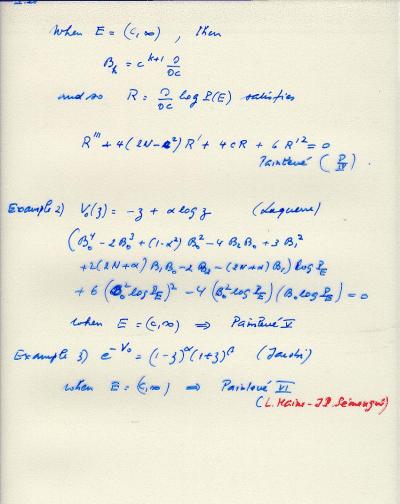 When E = (c,∞) , then
B_k = c^{k+1} ∂/∂c
and so R = ∂/∂c log P(E) satisfies
R''' + 4(2N - c²) R' + 4 c R + 6 R'² = 0
Painlevé (P IV).
Example 2) V_0(z) = -z + α log z (Laguerre)
(B_0^4 - 2 B_0^3 + (1-α²) B_0^2 - 4 B_2 B_0 + 3 B_1^2
+ 2(2N+α) B_1 B_0 - 2 B_2 - (2N+α) B_1) log P_E
+ 6 (B_0^2 log P_E)^2 - 4 (B_0^2 log P_E)(B_0 log P_E) = 0
when E = (c,∞) ⟹ Painlevé V
Example 3) e^{-V_0} = (1-z)^α (1+z)^β (Jacobi)
when E = (c,∞) ⟹ Painlevé VI
(L. Haine - J.P. Semengue)